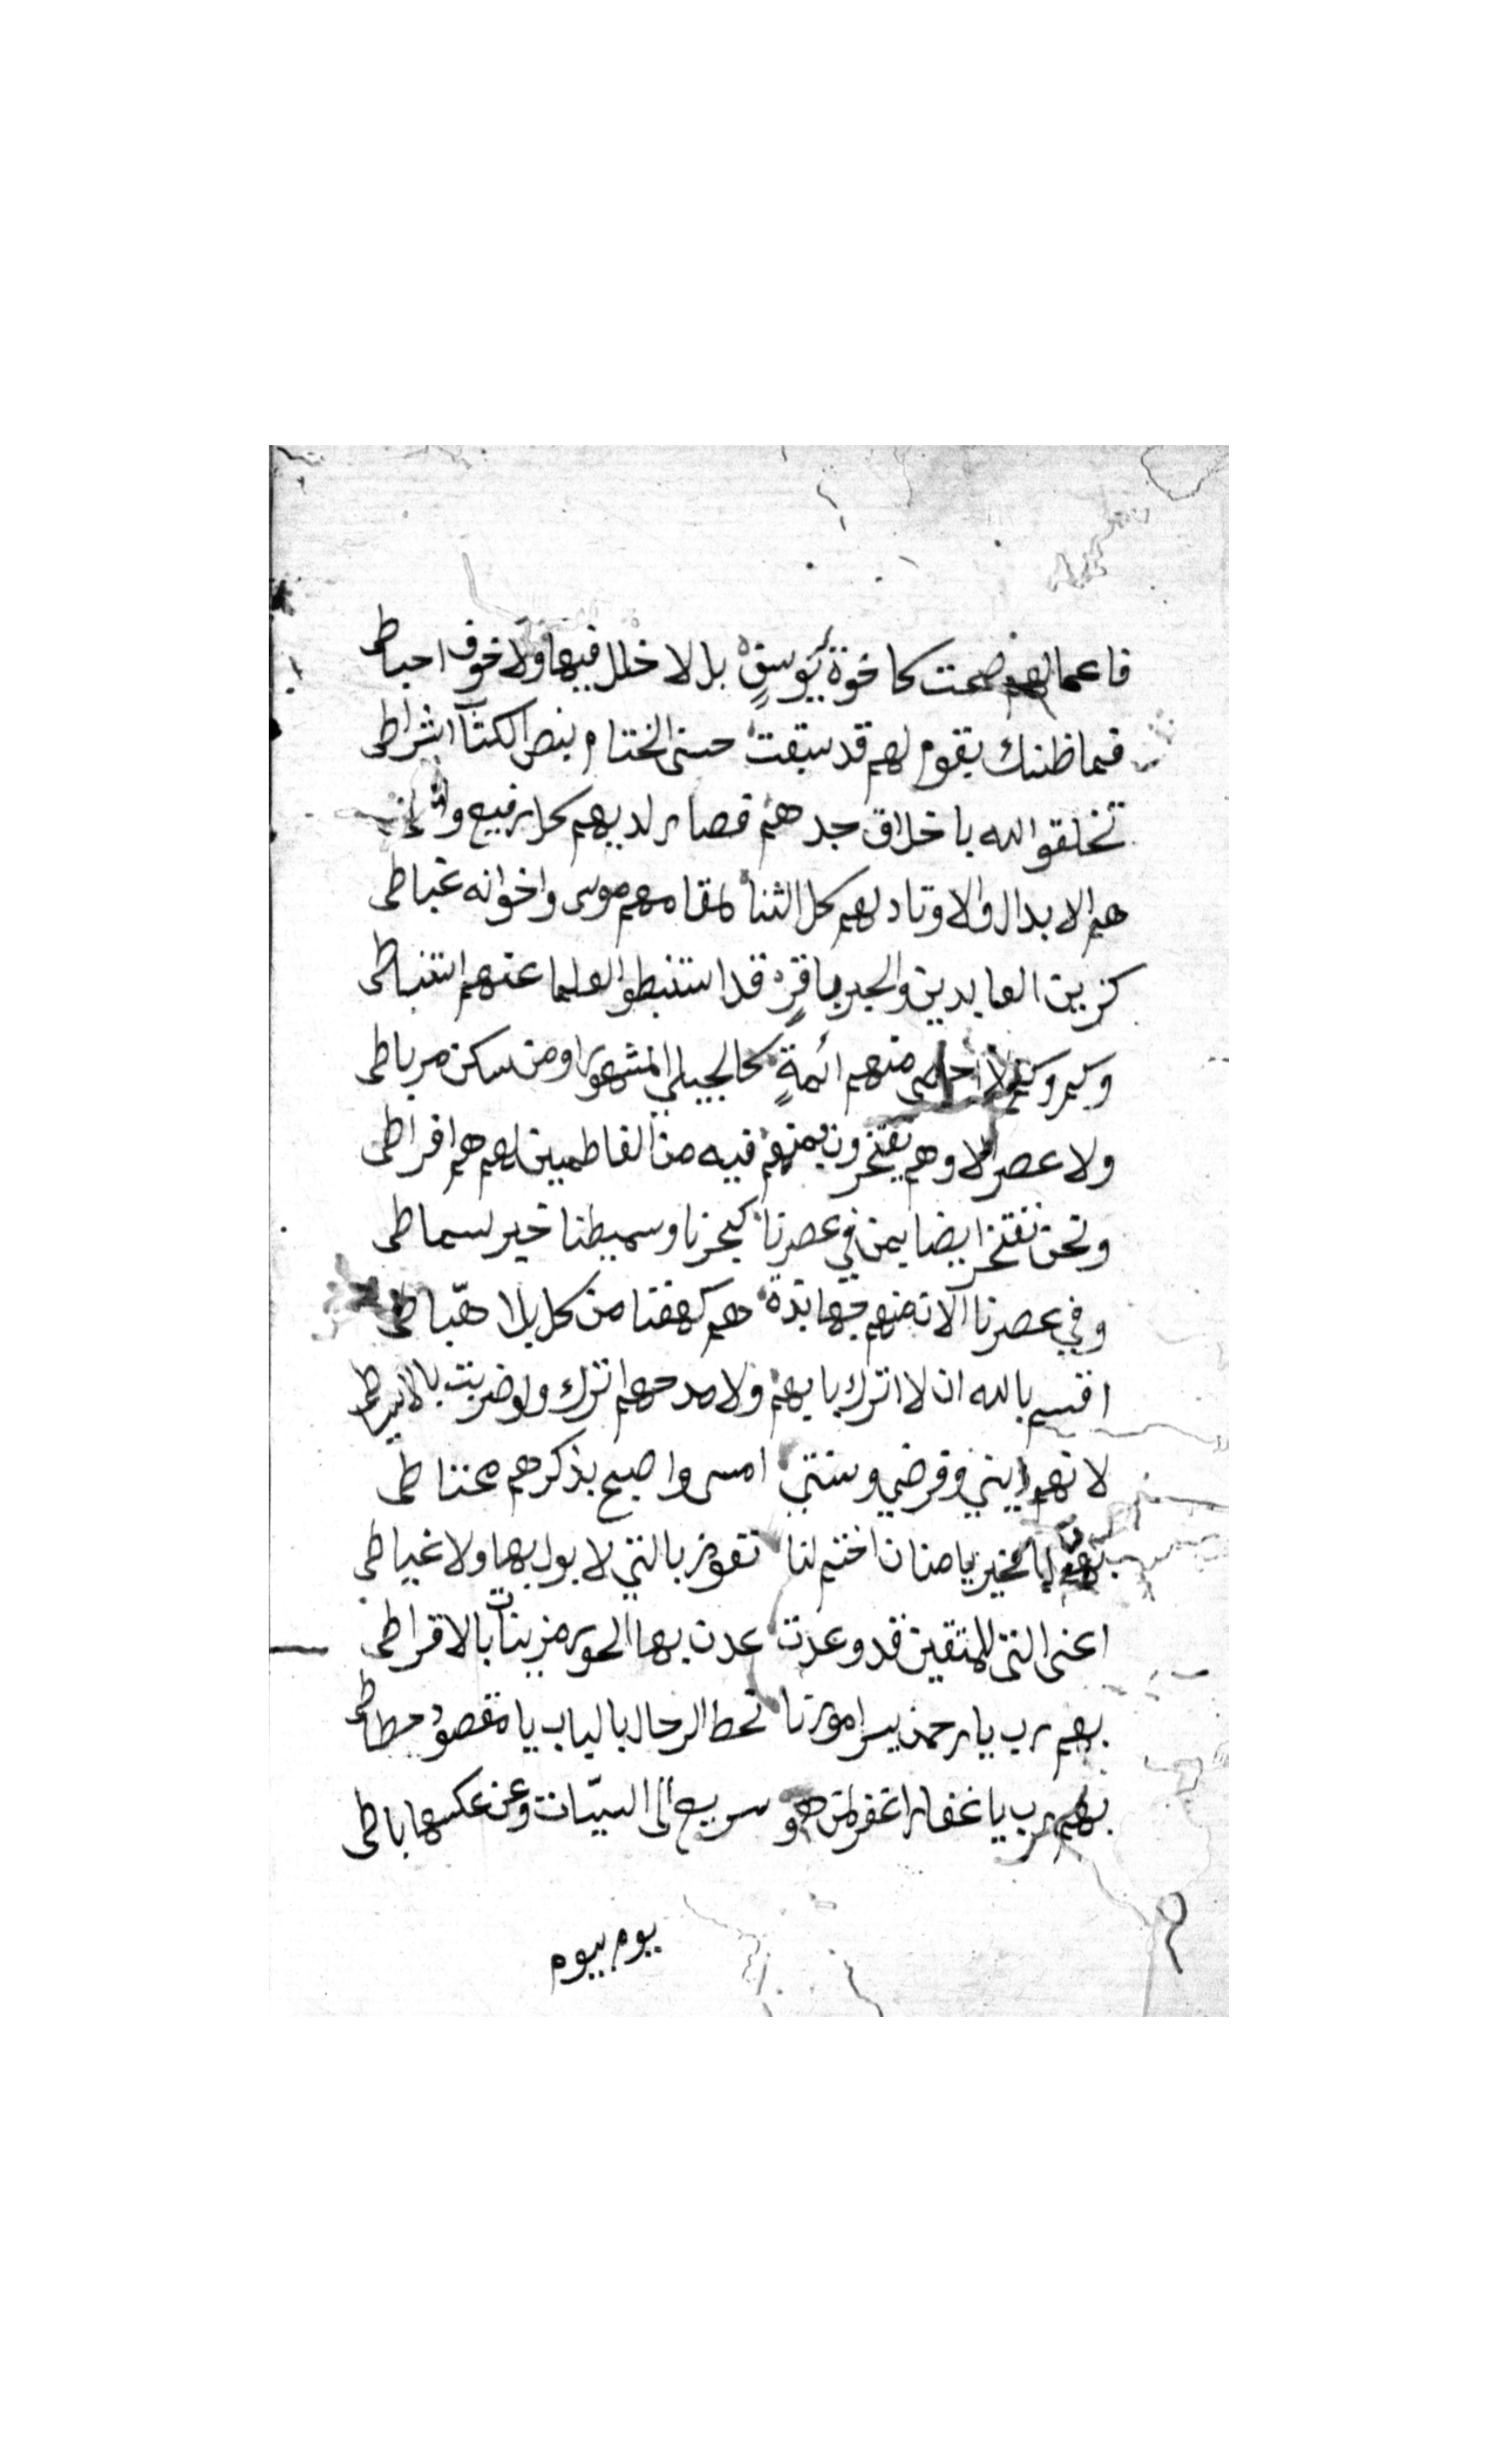 فاعمالهم ضحت كاخوة يوسف بل لا خلل فيها ولا خوف احباطي
فما ظنك بقوم لهم قد سبقت حسنى الختام بنص الكتاب اشراطي
تخلقوا لله باخلاق جدهم فصار لديهم كل رفيع
هم الابدال والاوتاد لهم كل الثنا لمقامهم موسى واخوانه غباطي
كزين العابدين والحبر باقره قد استنبطوا العلما عنهم استنباطي
وكم وكم لا احصى منهم ائمة كالجيلي المشهور ومن سكن مرباطي
ولا عصر الا وهم يفتخرون بمنهم فيه من الفاطميين لهم هم افراطي
ونحن نفتخر ايضا بمن في عصرنا كبحرنا وسميطنا خير سماطي
وفي عصرنا الان منهم جهابذة هم كهفنا من كل بلا هبّاطي
اقسم بالله ان لا اترك بابهم ولا مدحهم اترك ولو ضربت بالاسياطي
لانهم ديني وفرضي وسنتي امسى واصبح بذكرهم محتاطي
بالخير يا منان اختم لنا نفوز بالتي لا بول بها ولا غياطي
اعنى التى للمتقين قد وعدت عدن بها الحور مزينات بالاقراطي
بهم رب يا رحمن يسر امورنا نحط الرحال بالباب يا مقصود حطاطي
بهم رب يا غفار اغفر لمن هو سريع الى السيّات وعن عكسها باطي
يوم بيوم